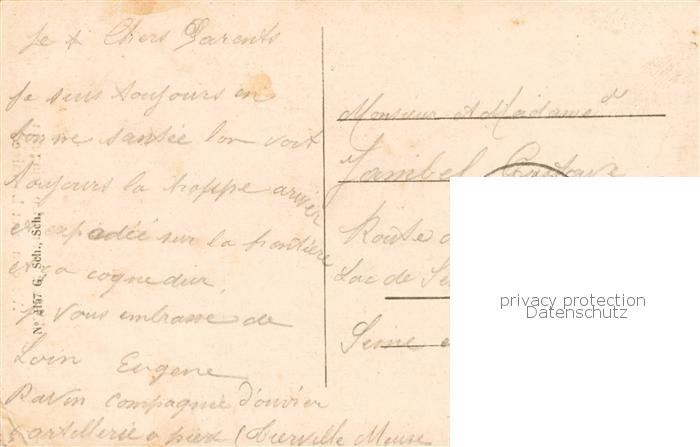 Je + Chers Parents
Je suis toujours en
bonne santée l'on voit
toujours la troppe arriver
et expadée sur la frontière
et a cogne dur,
J Vous embrasse de
Loin Eugene
Ravin Compagnie d'ouvier
artillerie a pied (Thierville Meuse
Monsieur et Madame
Jambel Gustave
Route
Lac de
Seine e
No 4197 G. Sch., Sch.
privacy protection
Datenschutz